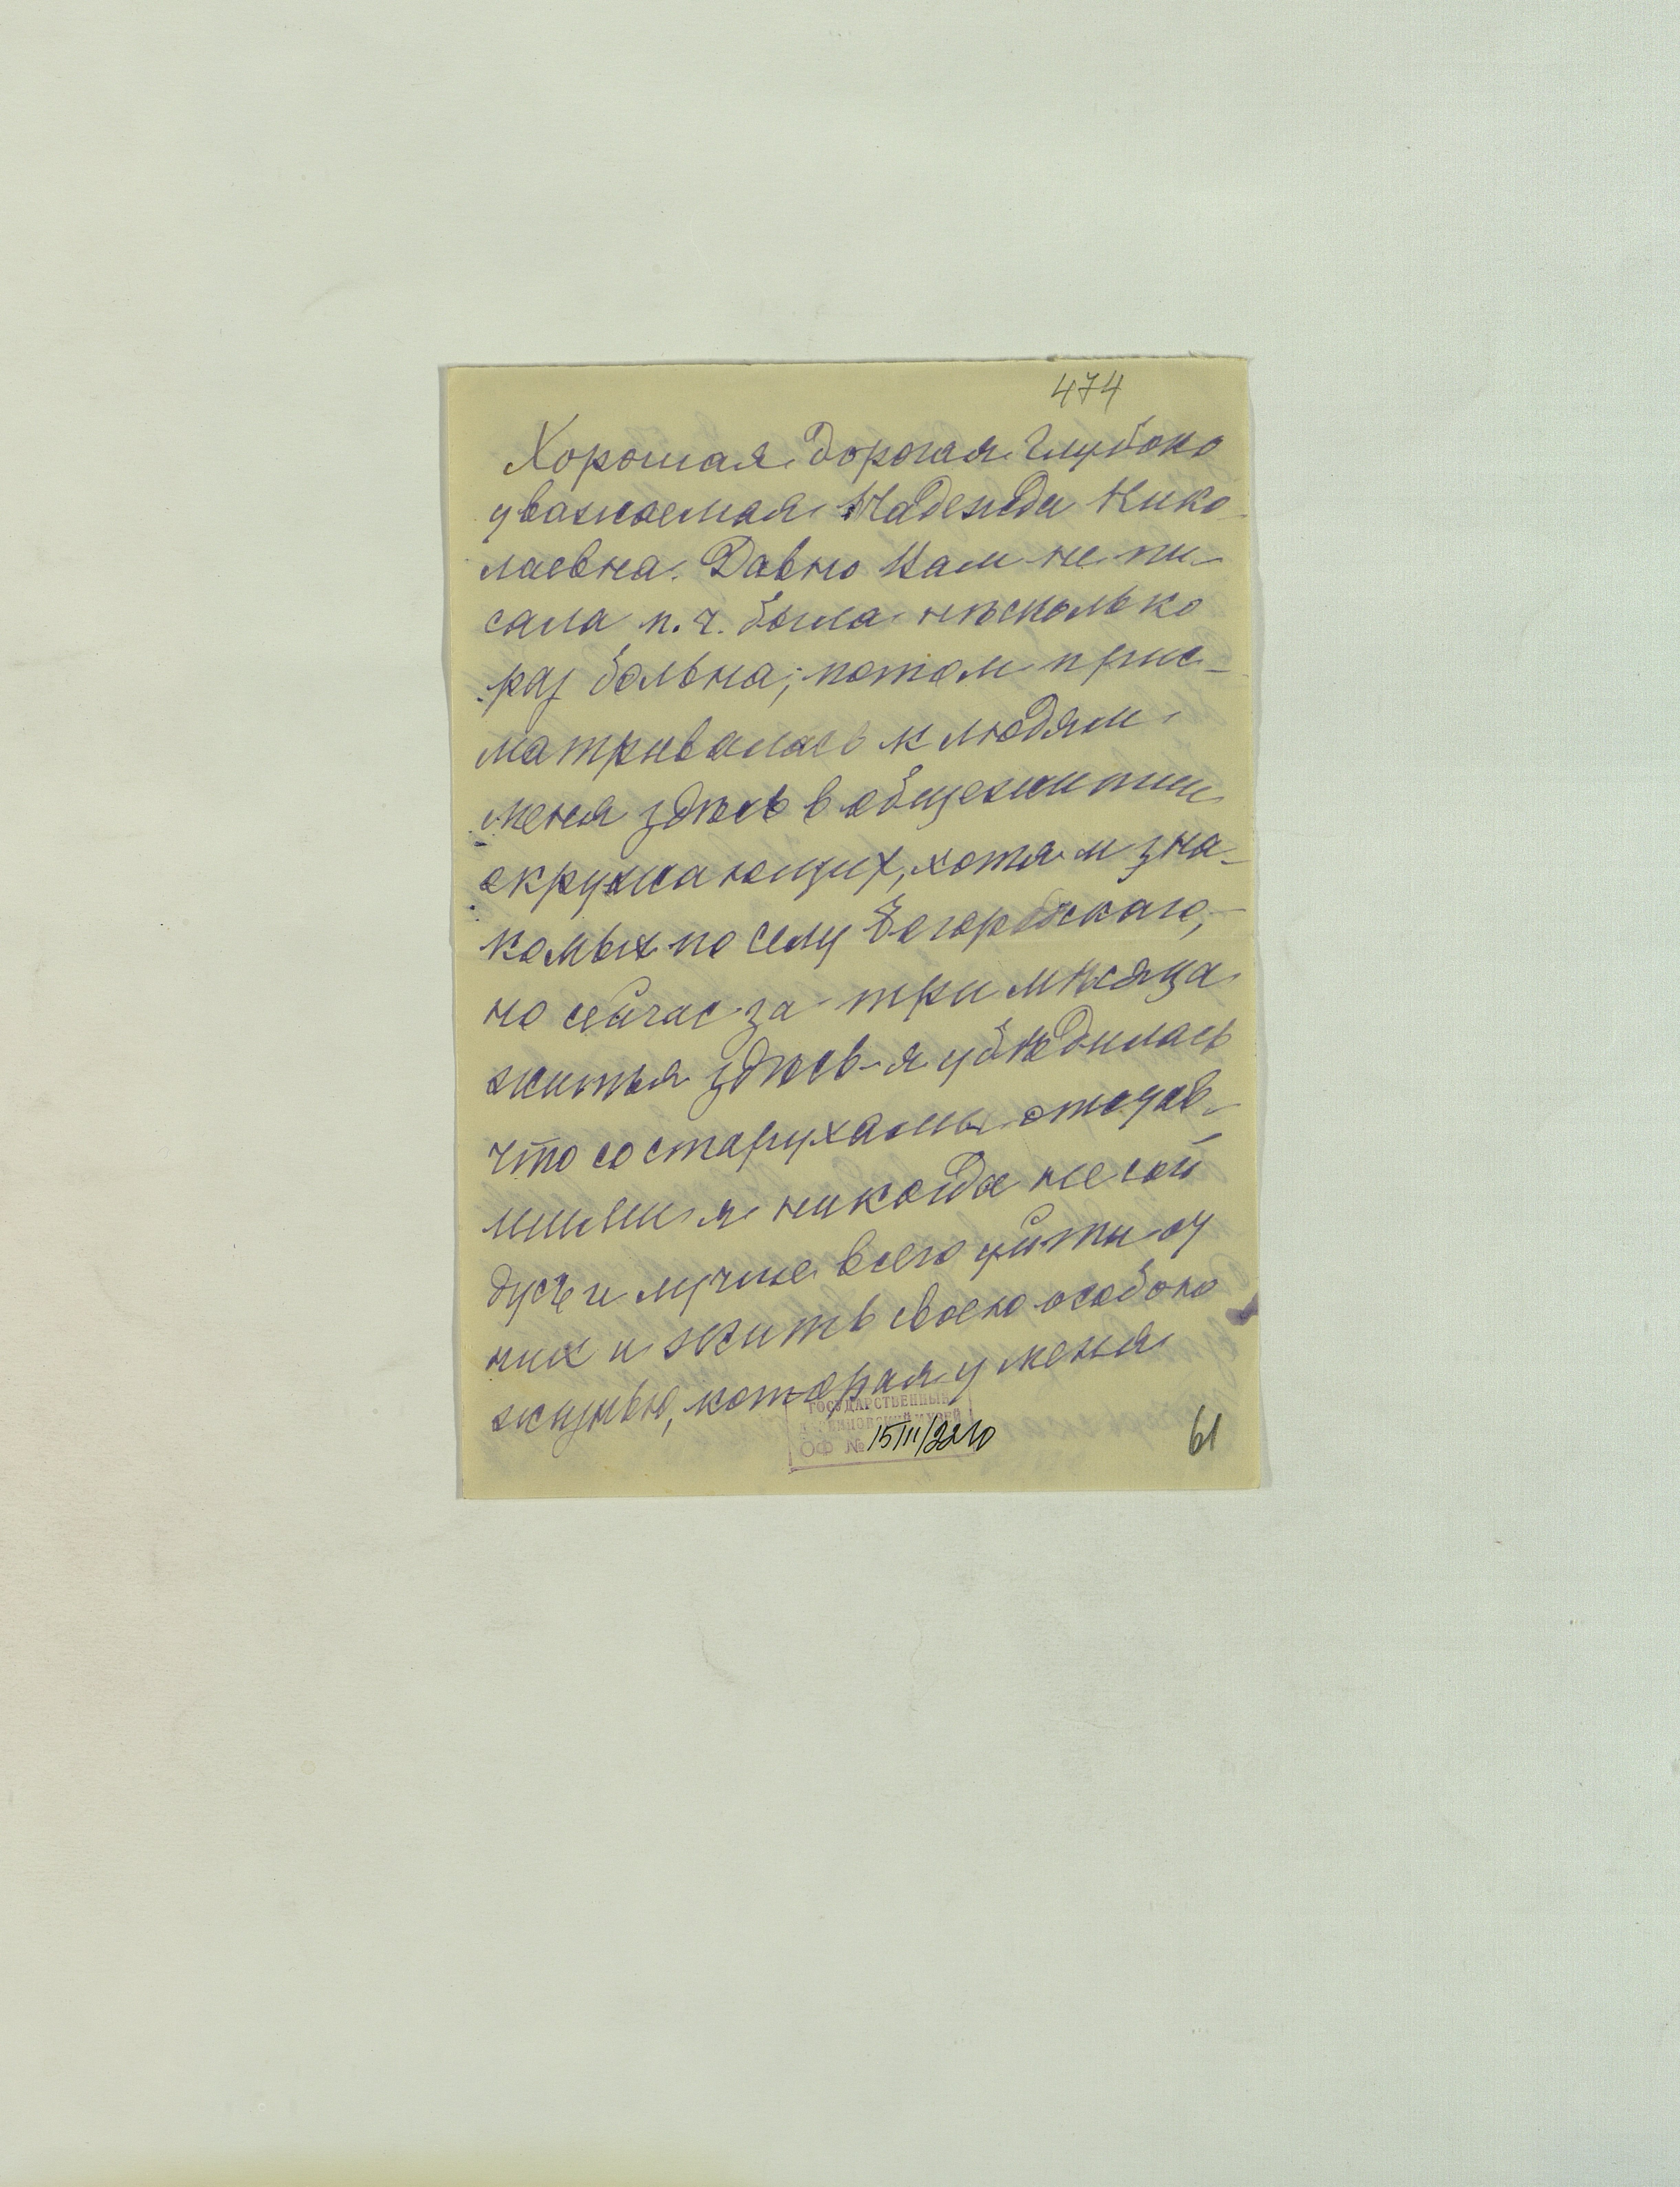 474
Хорошая дорогая глубоко
уважаемая Надежда Нико-
лаевна. Давно Вам не пи-
сала п. ч. была нѣсколько
раз больна; потом прис-
матривалась к людям
меня здѣсь в общежитии
окружающих, хотя и зна-
комых по селу
но сейчас за три мѣсяца
житья здѣсь я убѣдилась
что со старухами отсдав-
шими я никогда не сой
дусь и лучше всего уйти от
них и жить своею особою
жизнью, которая у меня
ГОСУДАРСТВЕННЫЙ
МУЗЕЙ
ОФ № 15111/2210
61